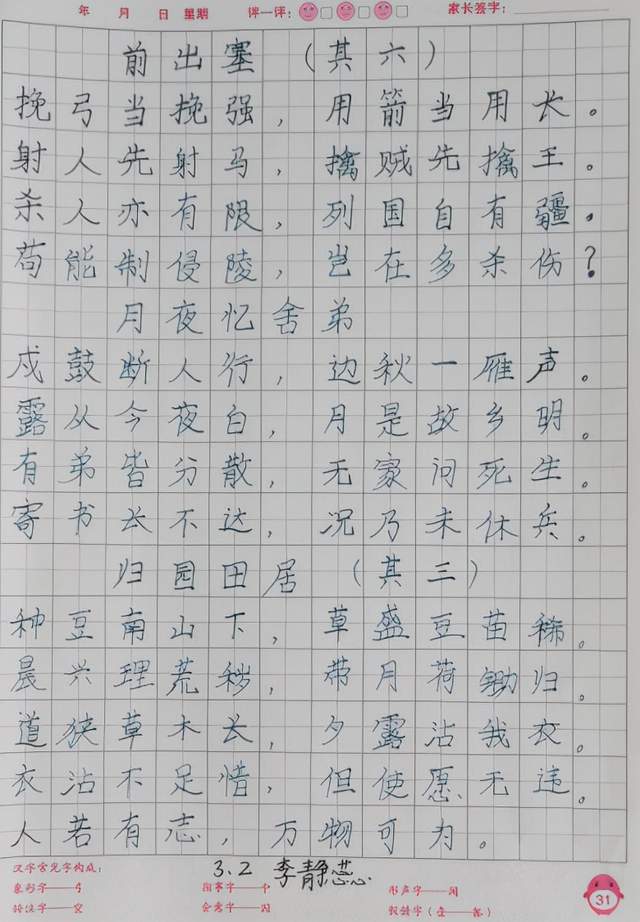 年 月 日 星期 评一评： 家长签字：
前出塞（其六）
挽弓当挽强，用箭当用长。
射人先射马，擒贼先擒王。
杀人亦有限，列国自有疆。
苟能制侵陵，岂在多杀伤？
月夜忆舍弟
戍鼓断人行，边秋一雁声。
露从今夜白，月是故乡明。
有弟皆分散，无家问死生。
寄书长不达，况乃未休兵。
归园田居（其三）
种豆南山下，草盛豆苗稀。
晨兴理荒秽，带月荷锄归。
道狭草木长，夕露沾我衣。
衣沾不足惜，但使愿无违。
人若有志，万物可为。
3.2 李静蕊
象形字——弓 指事字——个 形声字——闻
会意字——囚
31